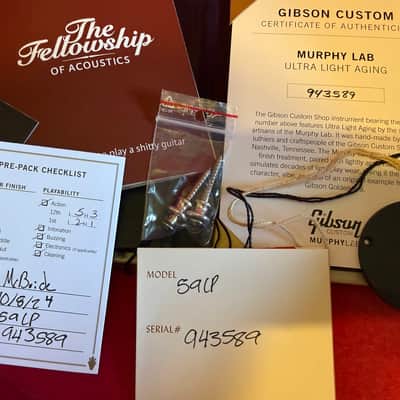 The
Fellowship
OF ACOUSTICS
play a shitty guitar
GIBSON CUSTOM
CERTIFICATE OF AUTHENTICI
MURPHY LAB
ULTRA LIGHT AGING
943589
The Gibson Custom Shop instrument bearing the
number above features Ultra Light Aging by the
artisans of the Murphy Lab. It was hand-made by
luthiers and craftspeople of the Gibson Custom
Nashville, Tennessee. The Murphy
finish treatment, paired
simulates decades of
character, of an original example
Gibson Golden
Gibson
CUSTOM
MURPHY LAB
PRE-PACK CHECKLIST
FINISH
PLAYABILITY
Action
12th
1st
Intonation
Buzzing
Electronics
Cleaning
McBride
10/8/24
59LP
943589
MODEL
59LP
SERIAL#
943589